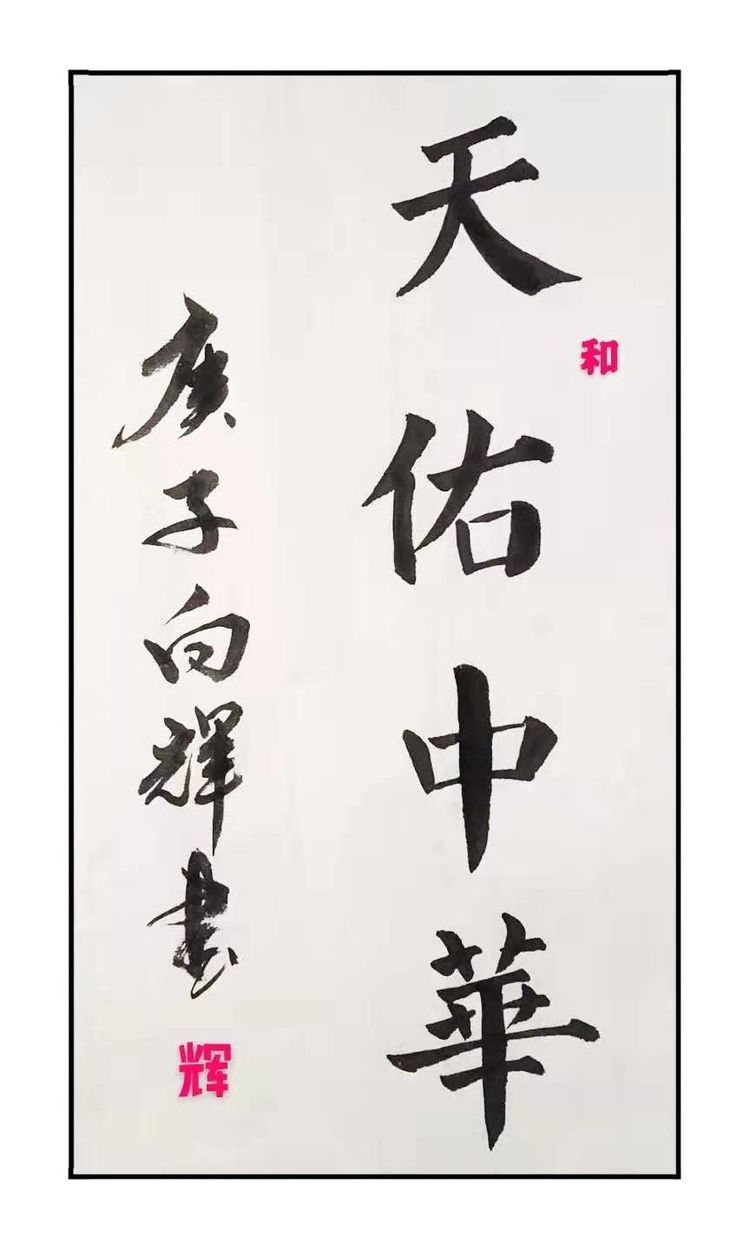 天佑中華
和
庚子向輝書
辉